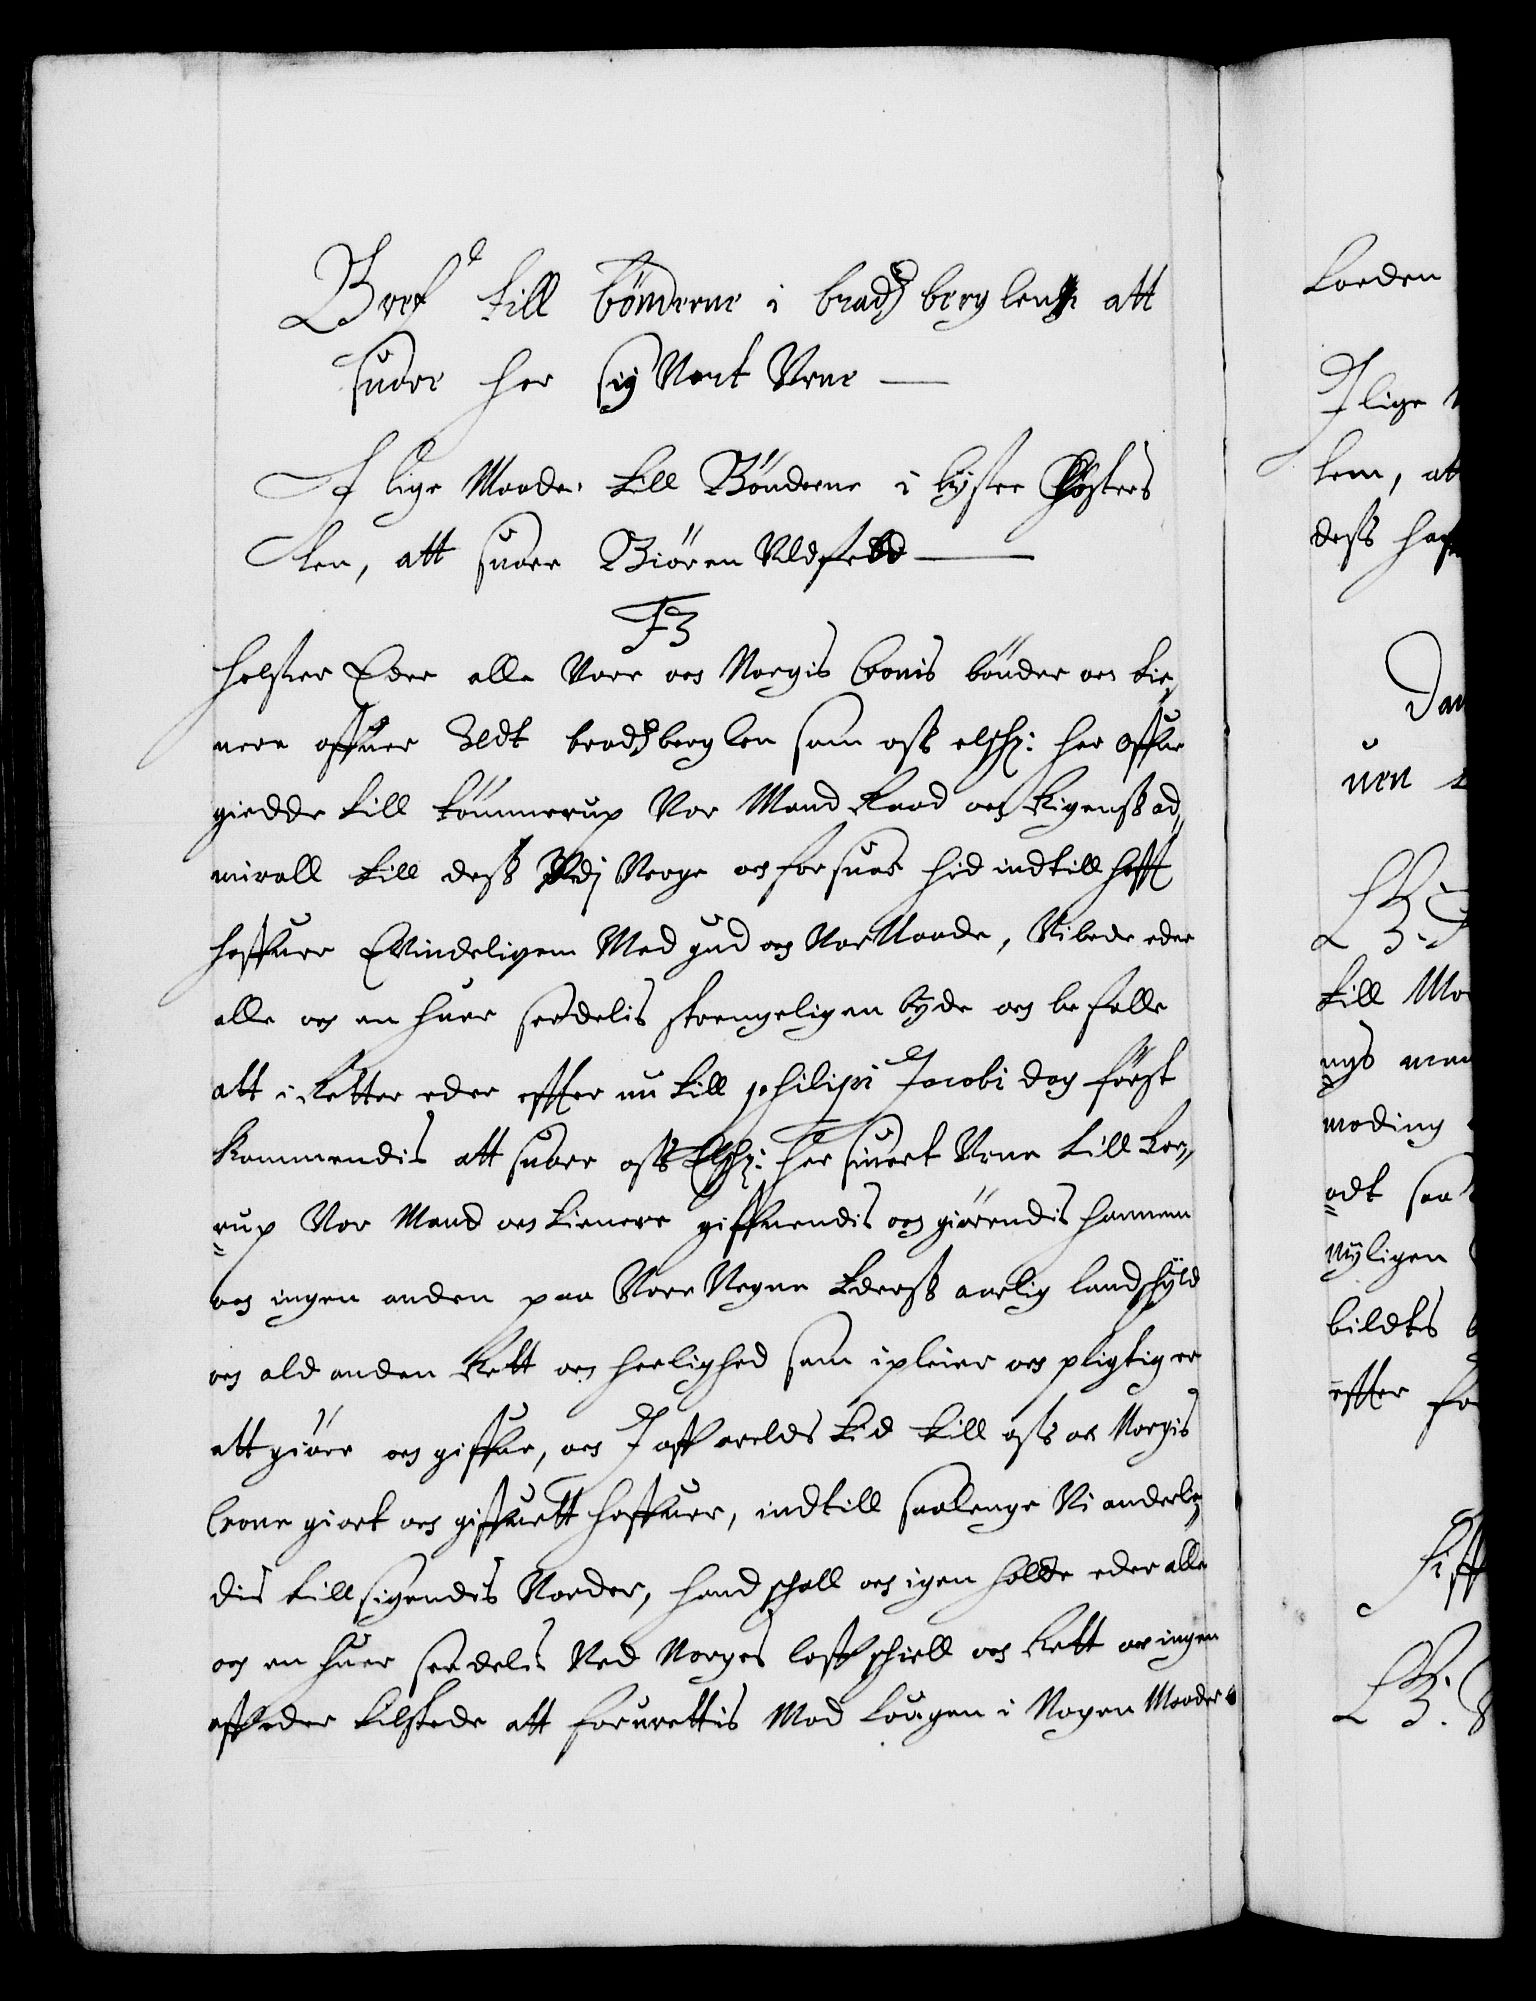 Breff till bönderne i bradsberg lenn att
suare her Siuert Vrne
I lige Maade till Bönderne i lyster Closters
len, att suare Biörn Vldfeld
F3
helser Eder alle Vore oc Norgis Cronis bönder oc tie,,
nere offuer Alдt bradsberg len som oss elsch: her Offue
giedde till tömmerup Vor Mand Raad oc Rigens ad,,
mirall till dess Vdj Verge oc forsuar hid indtill hafft
haffuer Evindeligen Med gud oc Vor Naade, Vi bede eder
alle oc en huer serdelis strengeligen byde oc befalle
att i Retter eder effter nu till philippi Jacobi dag först
kommendis att suare oss Elsch: her siuert Vrne till
rup Vor Mand oc tienere giffuendis oc giörendis hannem
oc ingen anden paa Vore Vegne Ederss aarlig landschyld
oc ald anden Rett oc herlighed som i pleier oc pligtig er
att giöre oc giffue, oc I aff arelds tid till oss oc Norgis
Crone giort oc giffuett haffuer, indtill saalenge Vi anderle,,
dis till sigendis Vorder, hand schall oc igen holde eder alle
oc en huer serdelis Ved Norges loff schiell oc Rett oc ingen
aff eder tilstede att forurettis Mod Lougen i Nogen Maader
Lorden
I lige
len, at
dess haf
Dan
uen
till Mo
nys man
moding
adt saa
nyligen
bildts
effter fo